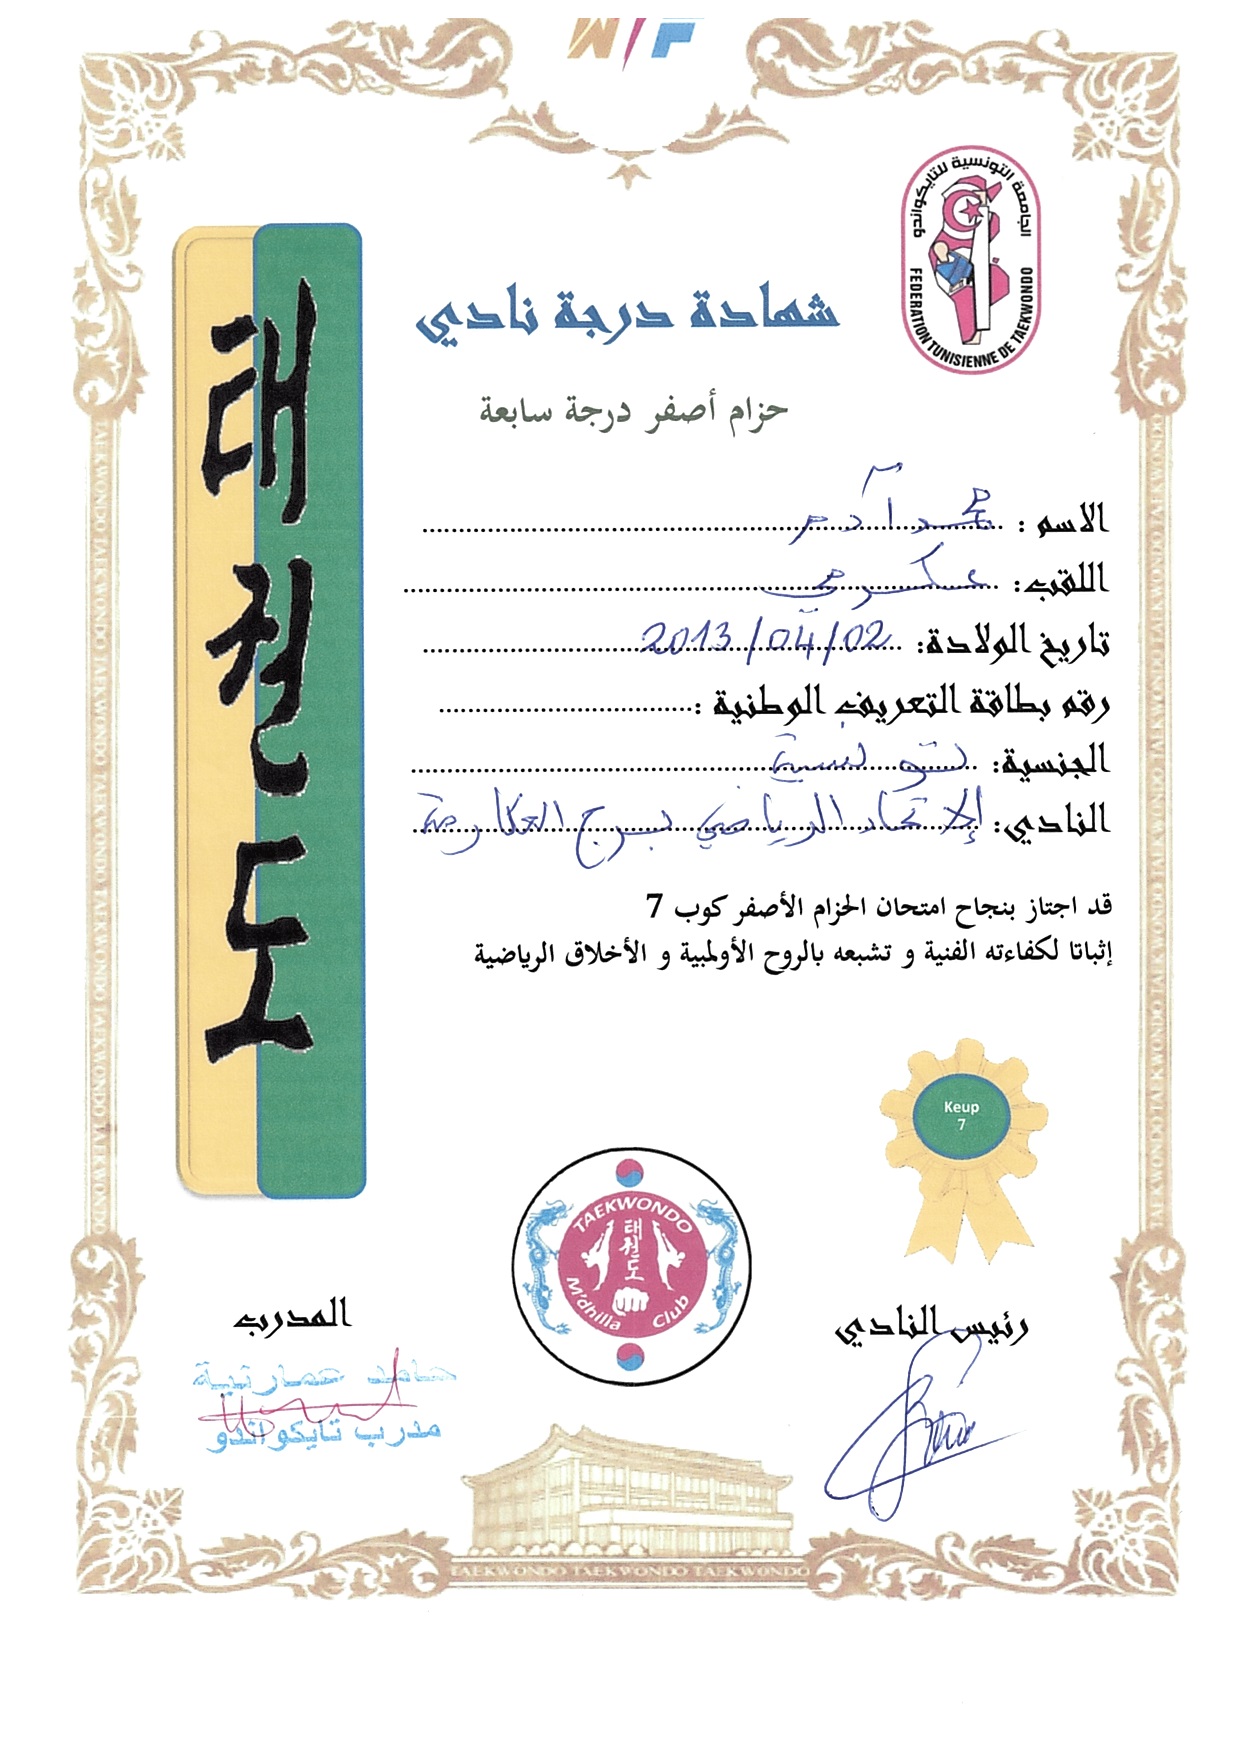 WTF
الجامعة التونسية للتايكواندو
FEDERATION TUNISIENNE DE TAEKWONDO
태권도
شهادة درجة نادي
حزام أصفر درجة سابعة
الاسم : محمد آدم
اللقب: عكرمي
تاريخ الولادة: 2013/04/02
رقم بطاقة التعريف الوطنية :
الجنسية: تونسية
النادي: الاتحاد الرياضي ببرج العكارمة
قد اجتاز بنجاح امتحان الحزام الأصفر كوب 7
إثباتا لكفاءته الفنية و تشبعه بالروح الأولمبية و الأخلاق الرياضية
Keup
7
TAEKWONDO
태권도
M'dhilla Club
رئيس النادي
المدرب
حامد عمارتية
مدرب تايكواندو
TAEKWONDO TAEKWONDO TAEKWONDO